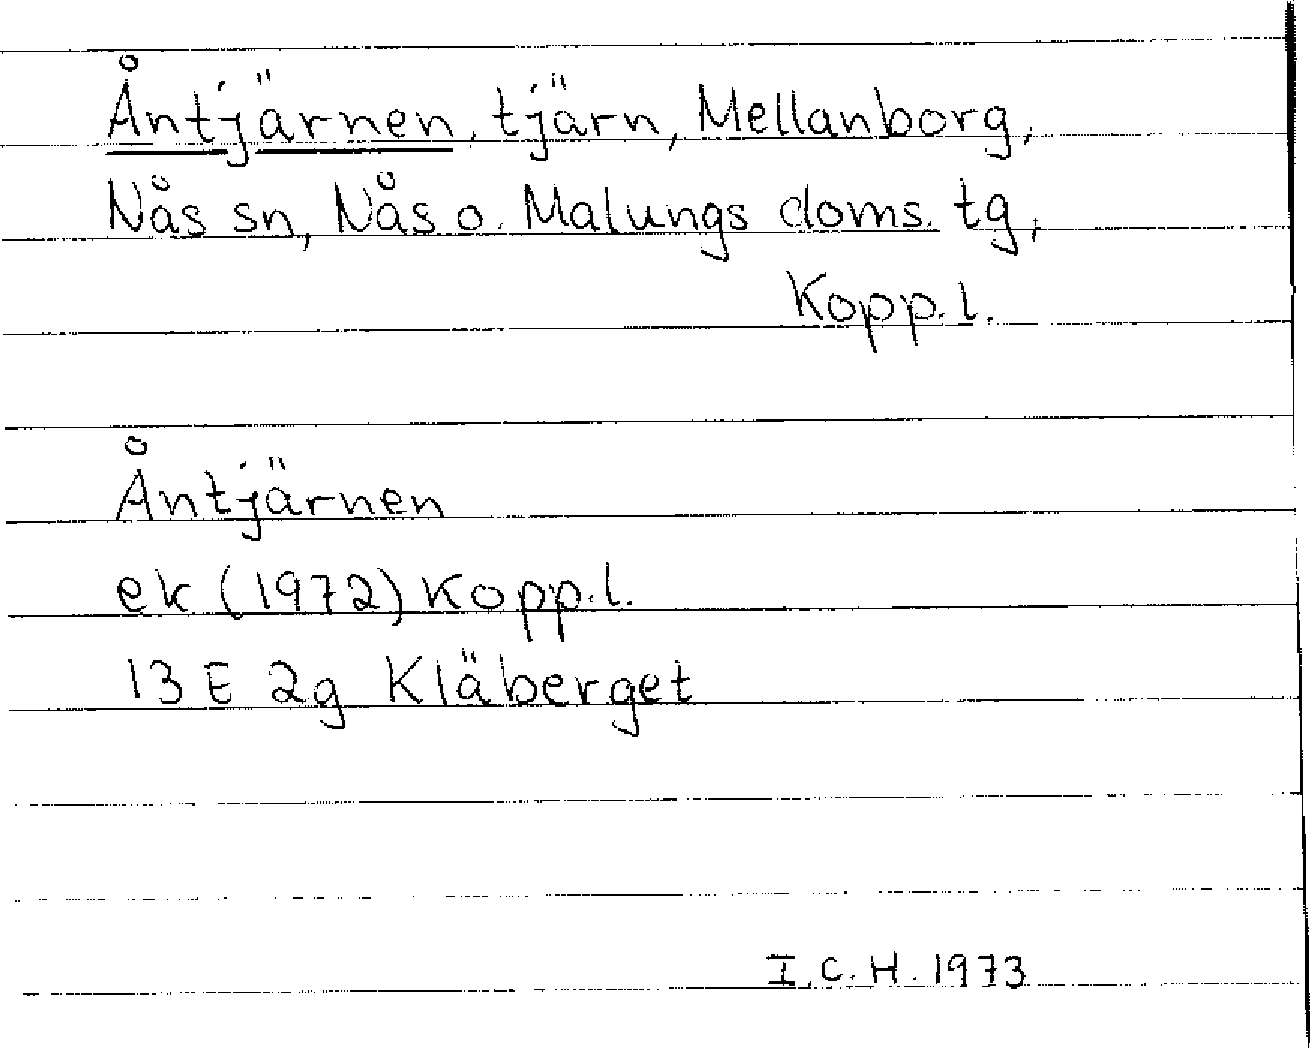 Åntjärnen, tjärn, Mellanborg,
Nås sn, Nås o. Malungs doms. tg,
Kopp. l.
Åntjärnen
ek (1972) Kopp. l.
13 E 2g Kläberget
I. C. H. 1973